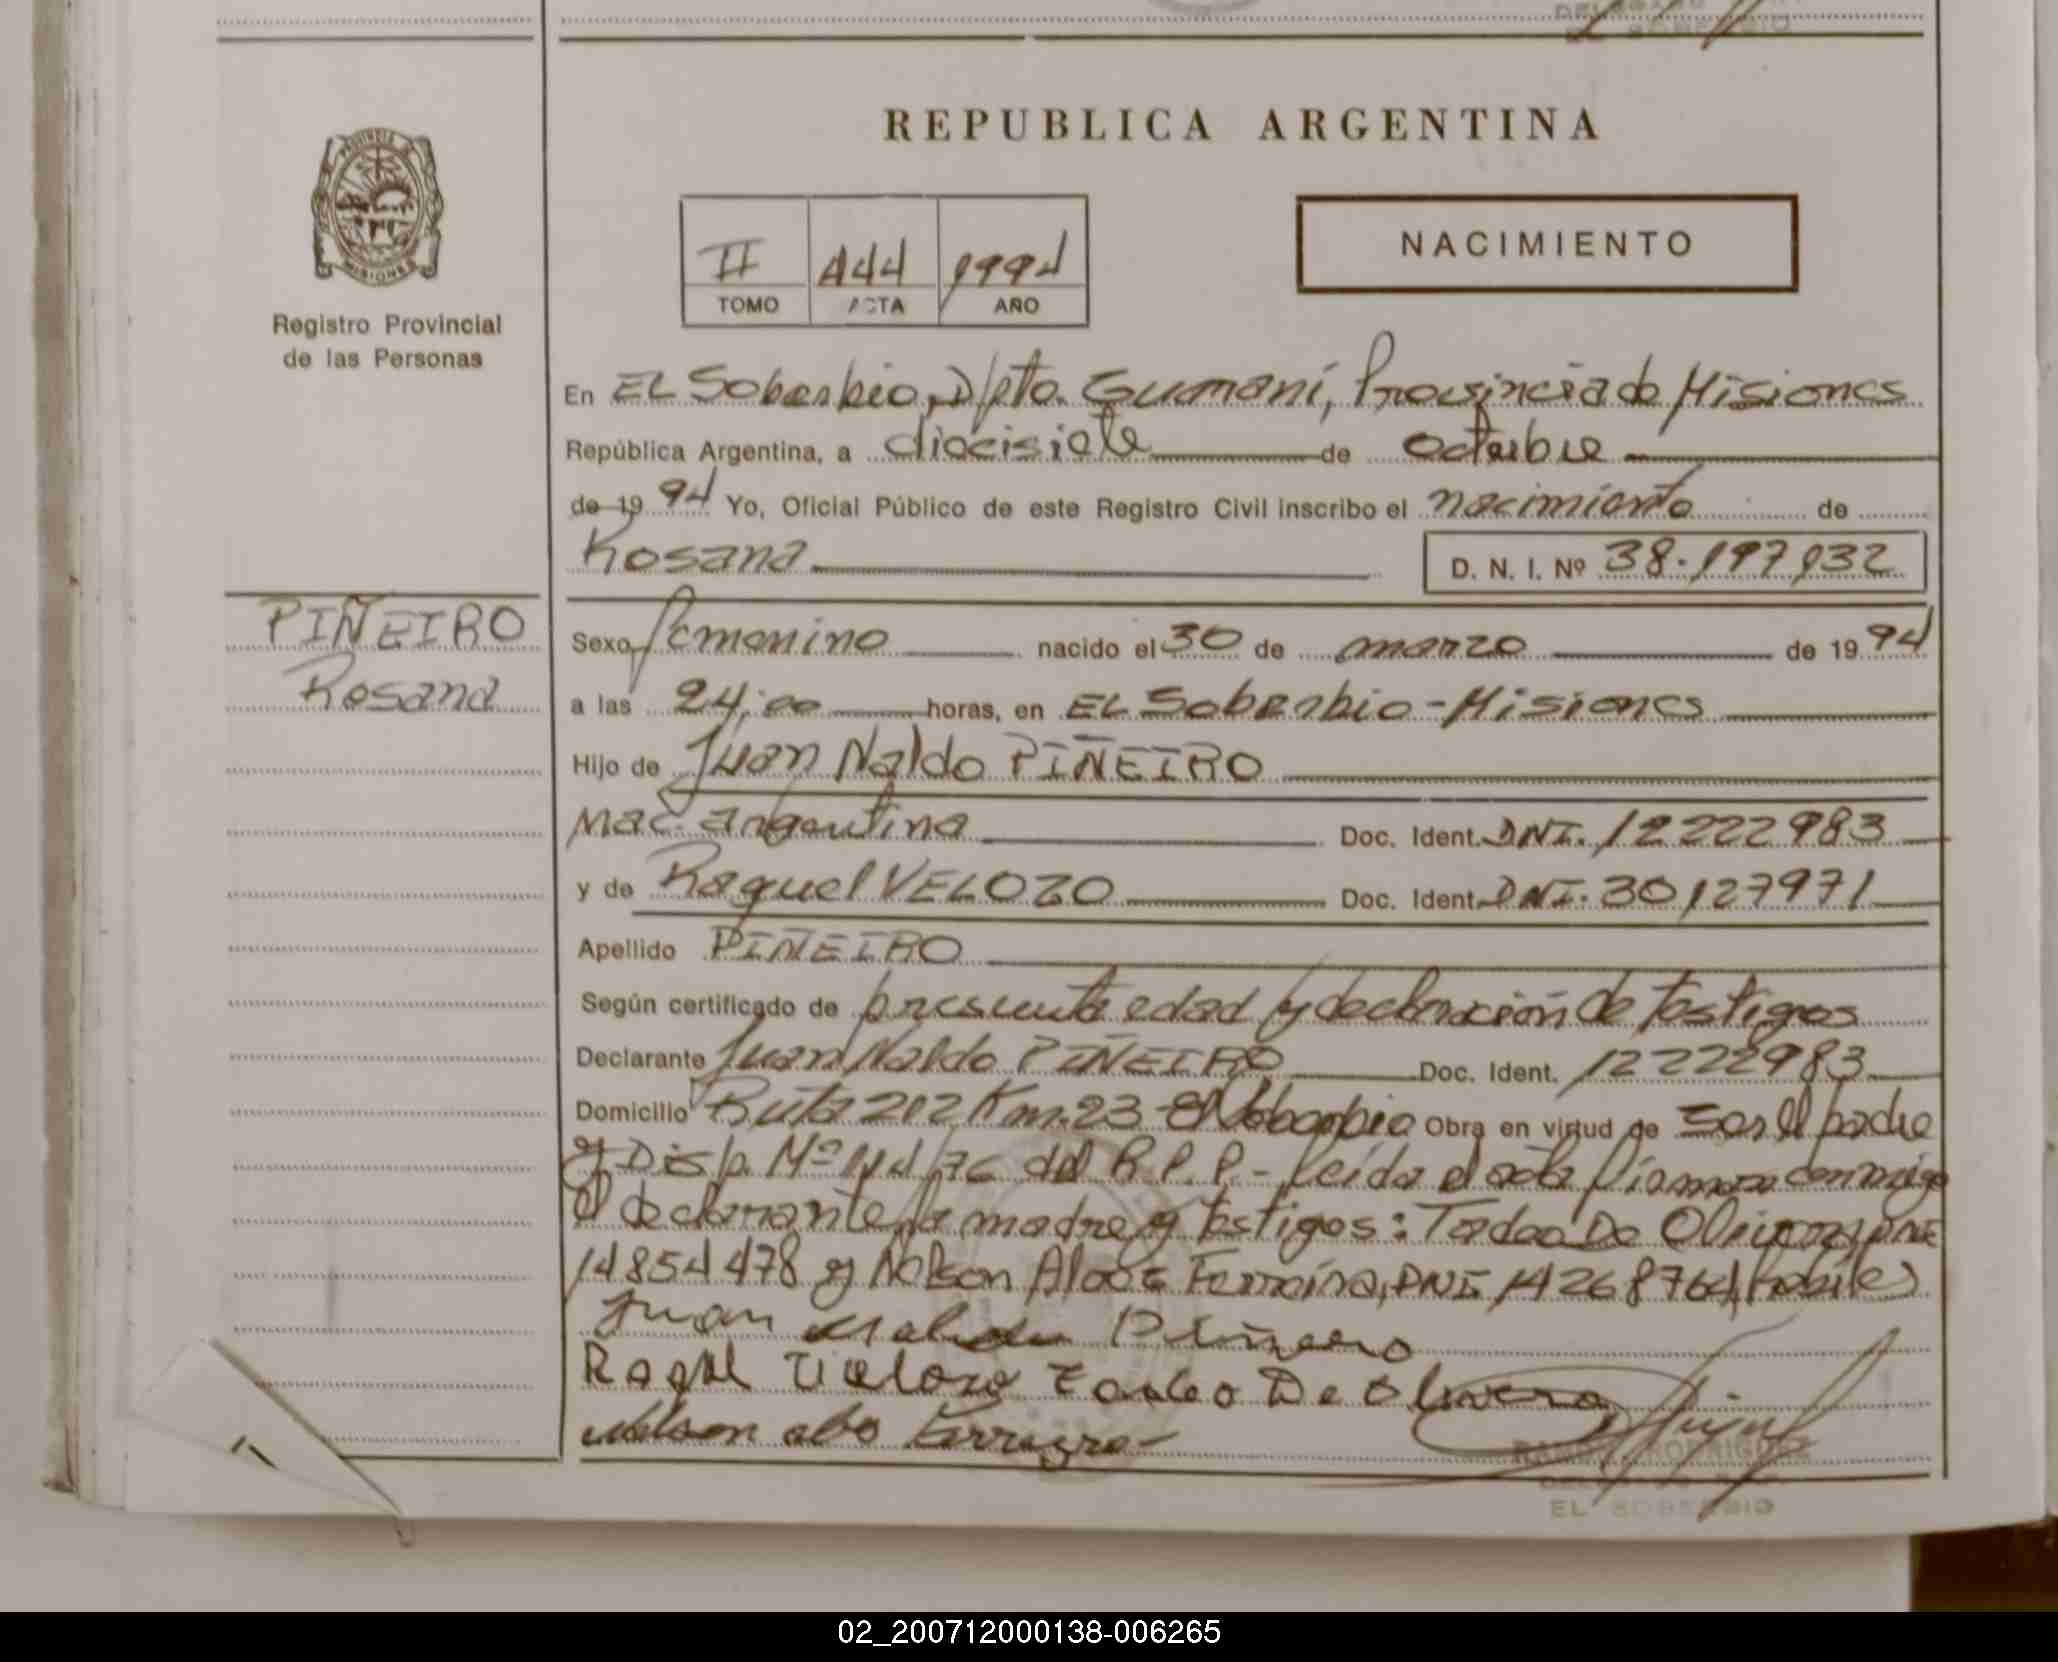 REPUBLICA ARGENTINA
PROVINCIA DE
MISIONES
Registro Provincial
de las Personas
II 444 1994
TOMO ACTA AÑO
NACIMIENTO
En EL Soberbio, Dpto. Guaraní, Provincia de Misiones
República Argentina, a diecisiete de octubre
de 1994 Yo, Oficial Público de este Registro Civil inscribo el nacimiento de
Rosana D. N. I. Nº 38.197,932
PIÑEIRO
Rosana
Sexo femenino nacido el 30 de marzo de 1994
a las 24,00 horas, en EL Soberbio - Misiones
Hijo de Juan Naldo PIÑEIRO
Nac. argentina Doc. Ident. DNI. 12222983
y de Raquel VELOZO Doc. Ident. DNI. 30127971
Apellido PIÑEIRO
Según certificado de presunta edad y declaración de testigos
Declarante Juan Naldo PIÑEIRO Doc. Ident. 12222983
Domicilio Ruta 212 Km. 23 - El Soberbio Obra en virtud de ser el padre
y Disp. Nº 114/76 del R.P.P. - Leída el acta firman conmigo
el declarante, la madre y testigos: Tadeo De Olivera, DNI
14854478 y Nelson Alves Ferreira, DNI 14268764, hábiles
Juan Naldo Piñeiro
Raqel Velozo Tadeo De Olivera
Nelson Ferreira
RODRIGUEZ
EL SOBERBIO
02_200712000138-006265